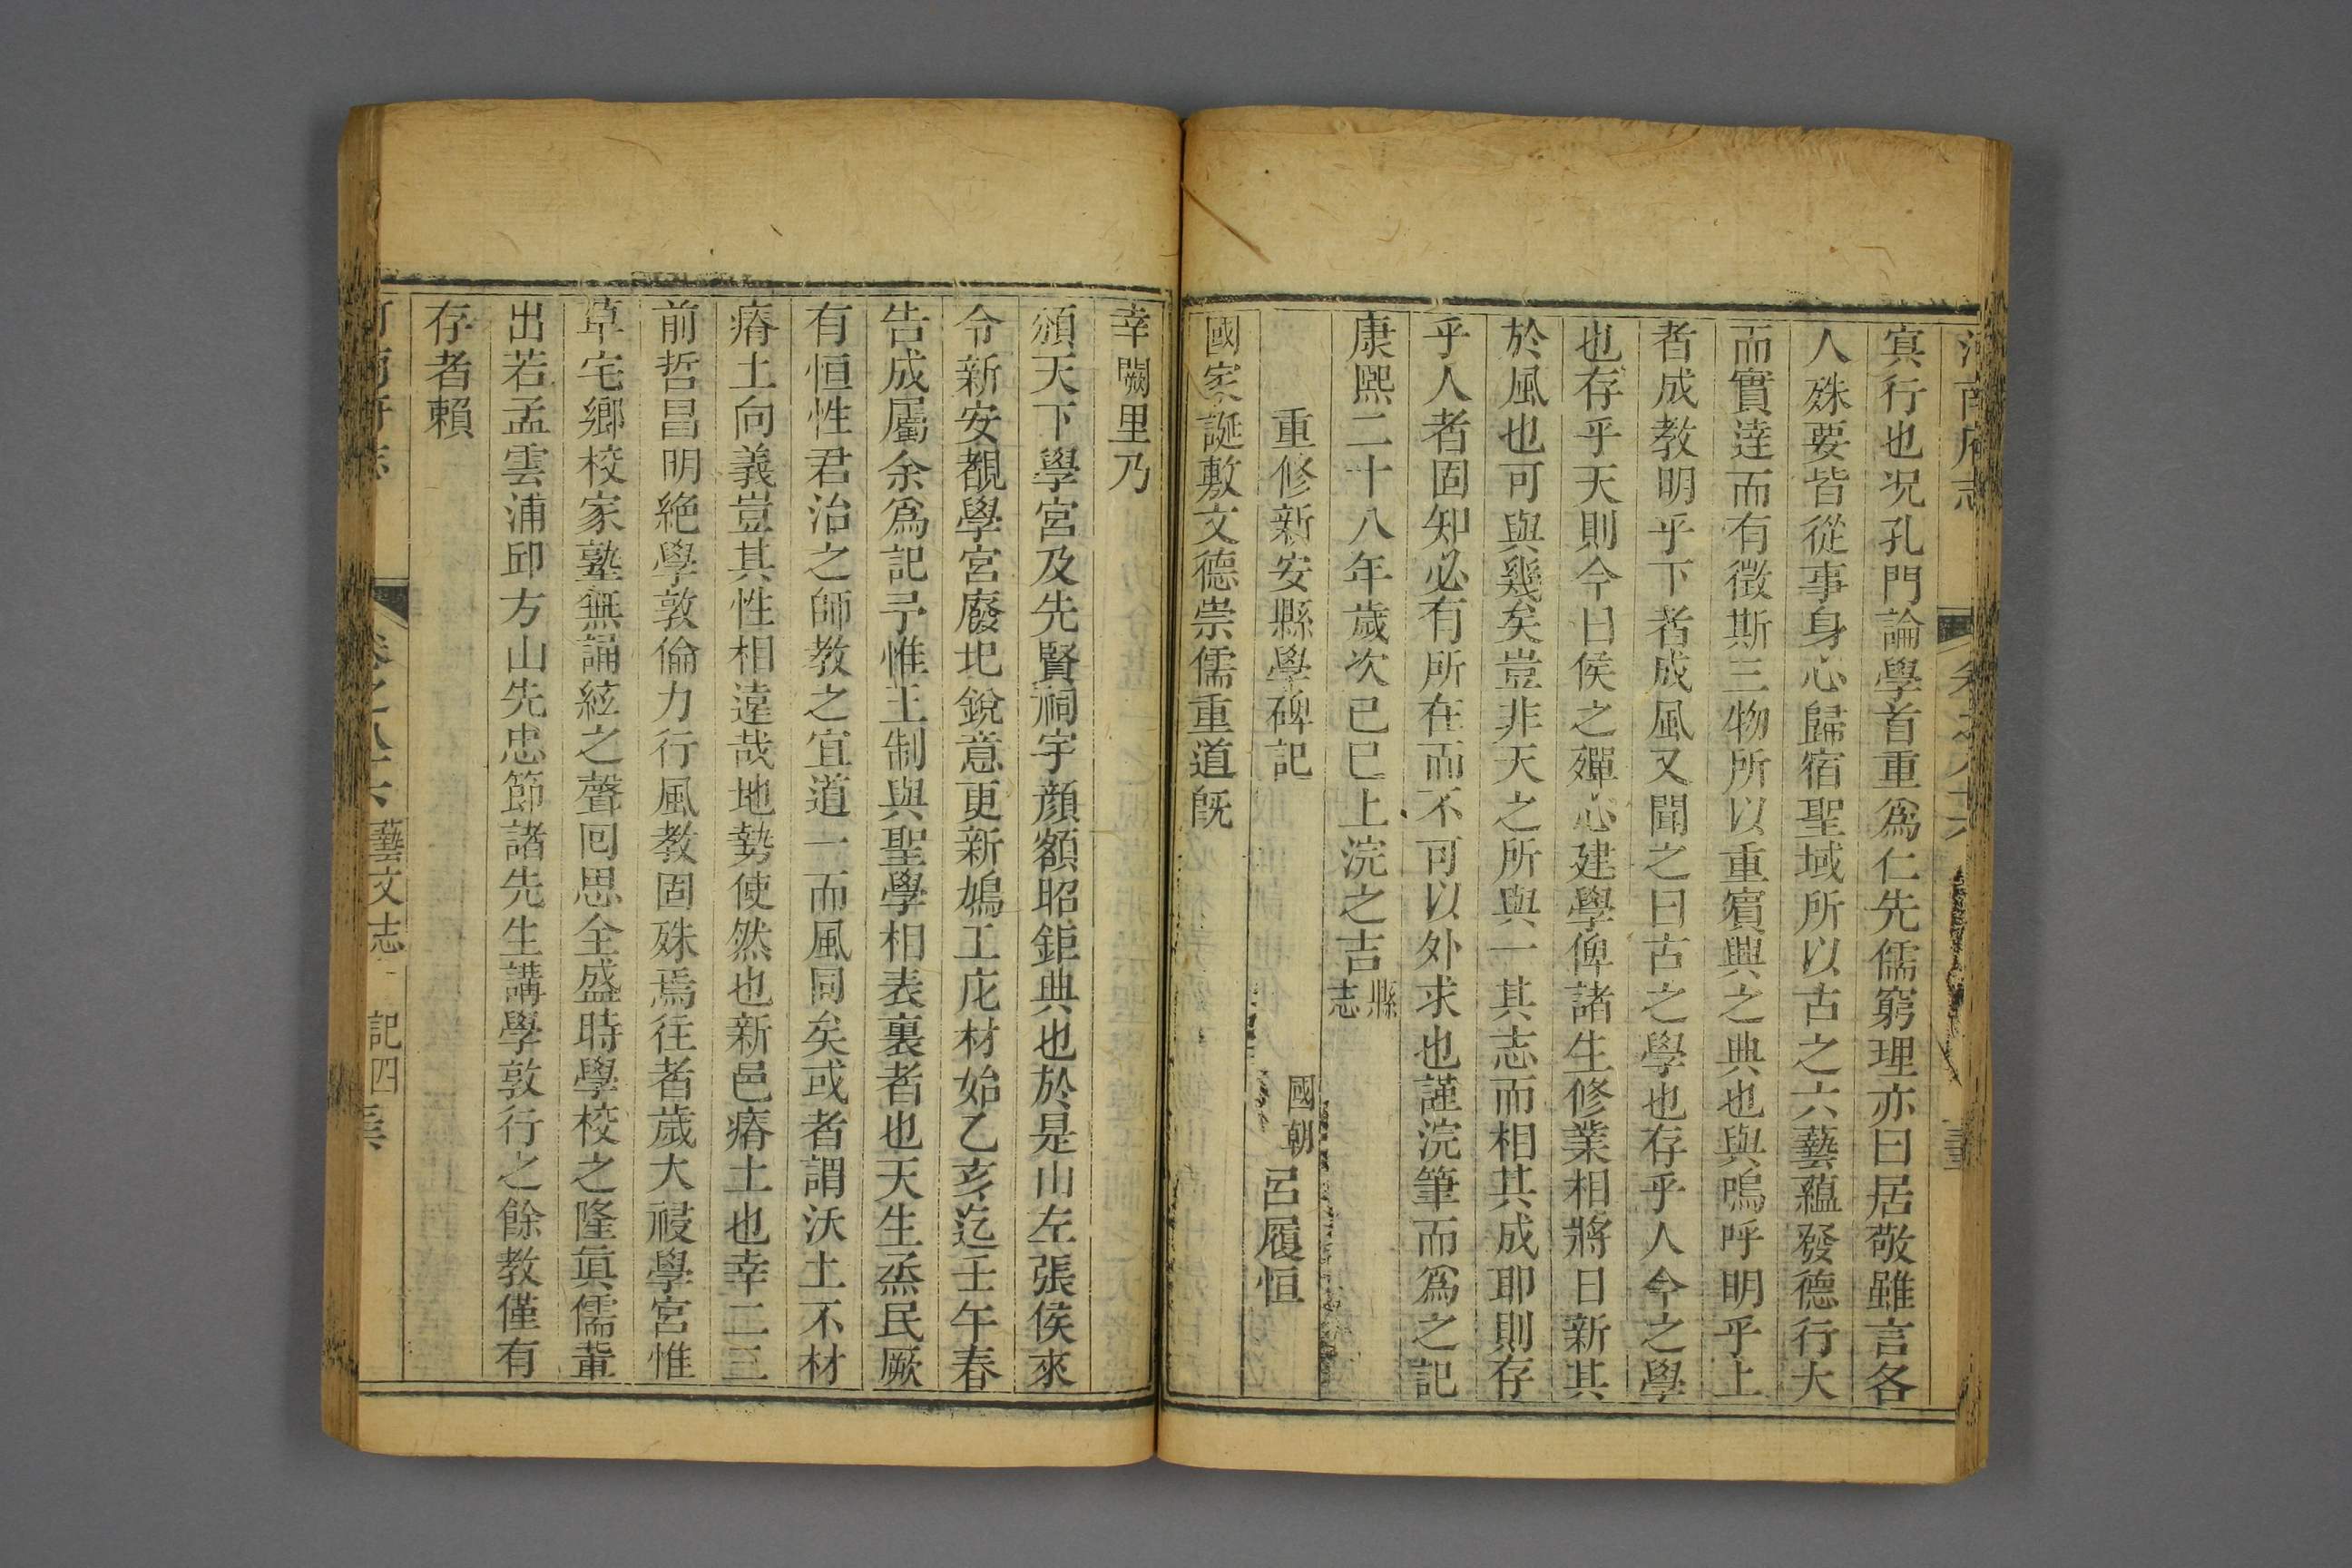 河南府志
冥行也况孔門論學首重爲仁先儒窮理亦曰居敬雖言各
人殊要皆從事身心歸宿聖域所以古之六藝蘊發德行大
而實達而有徵斯三物所以重賓興之典也與嗚呼明乎上
者成教明乎下者成風又聞之曰古之學也存乎人今之學
也存乎天則今日侯之殫心建學俾諸生修業相將日新其
於風也可與幾矣豈非天之所與一其志而相其成耶則存
乎人者固知必有所在而不可以外求也謹浣筆而爲之記
康熙二十八年歲次已巳上浣之吉縣志
重修新安縣學碑記
國朝
呂履恒
國家誕敷文德崇儒重道旣
幸闕里乃
頒天下學宮及先賢祠宇顏額昭鉅典也於是山左張侯來
令新安覩學宮廢圯銳意更新鳩工庀材始乙亥迄壬午春
告成屬余爲記予惟王制與聖學相表裏者也天生烝民厥
有恒性君治之師教之宜道一而風同矣或者謂沃土不材
瘠土向義豈其性相遠哉地勢使然也新邑瘠土也幸二三
前哲昌明絶學敦倫力行風教固殊焉往者歲大祲學宮惟
草宅鄉校家塾無誦絃之聲回思全盛時學校之隆眞儒輩
出若孟雲浦邱方山先忠節諸先生講學敦行之餘教僅有
存者賴
藝文志
記四